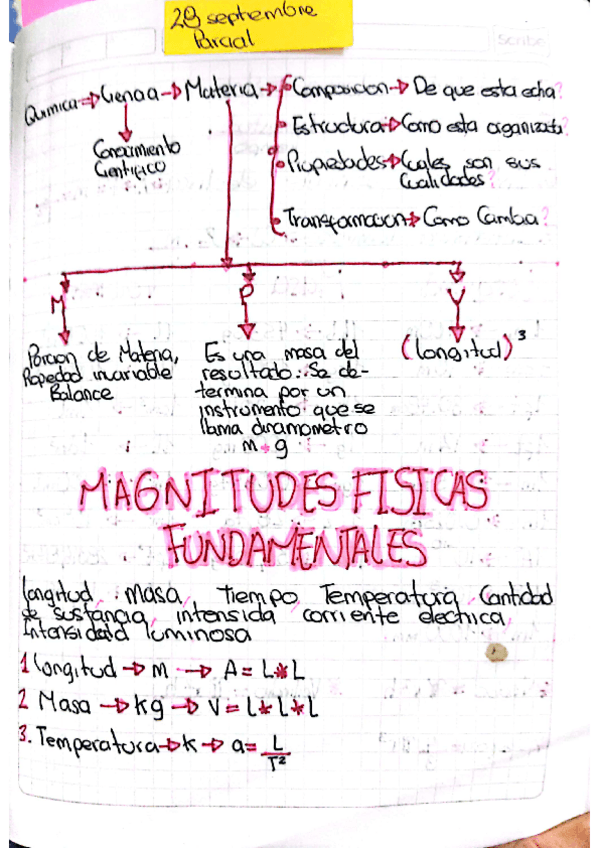 29 septiembre
Parcial
Scribe
Química → Ciencia → Materia → Composicion → De que esta echa?
Conocimiento
Cientifico
Estructura → Como esta organizada?
Propiedades → Cuales son sus
Cualidades?
Transformacion → Como Cambia?
M
P
V
Porcion de Materia,
Propiedad invariable
Balance
Es una masa del
resultado. Se de-
termina por un
instrumento que se
llama dinamometro
m * g
(longitud)³
MAGNITUDES FISICAS
FUNDAMENTALES
longitud, masa, Tiempo, Temperatura, Cantidad
de sustancia, intensida corriente electrica,
Intensidad luminosa
1 longitud → M → A = L*L
2 Masa → kg → V = L*L*L
3. Temperatura → k → a = L/T²